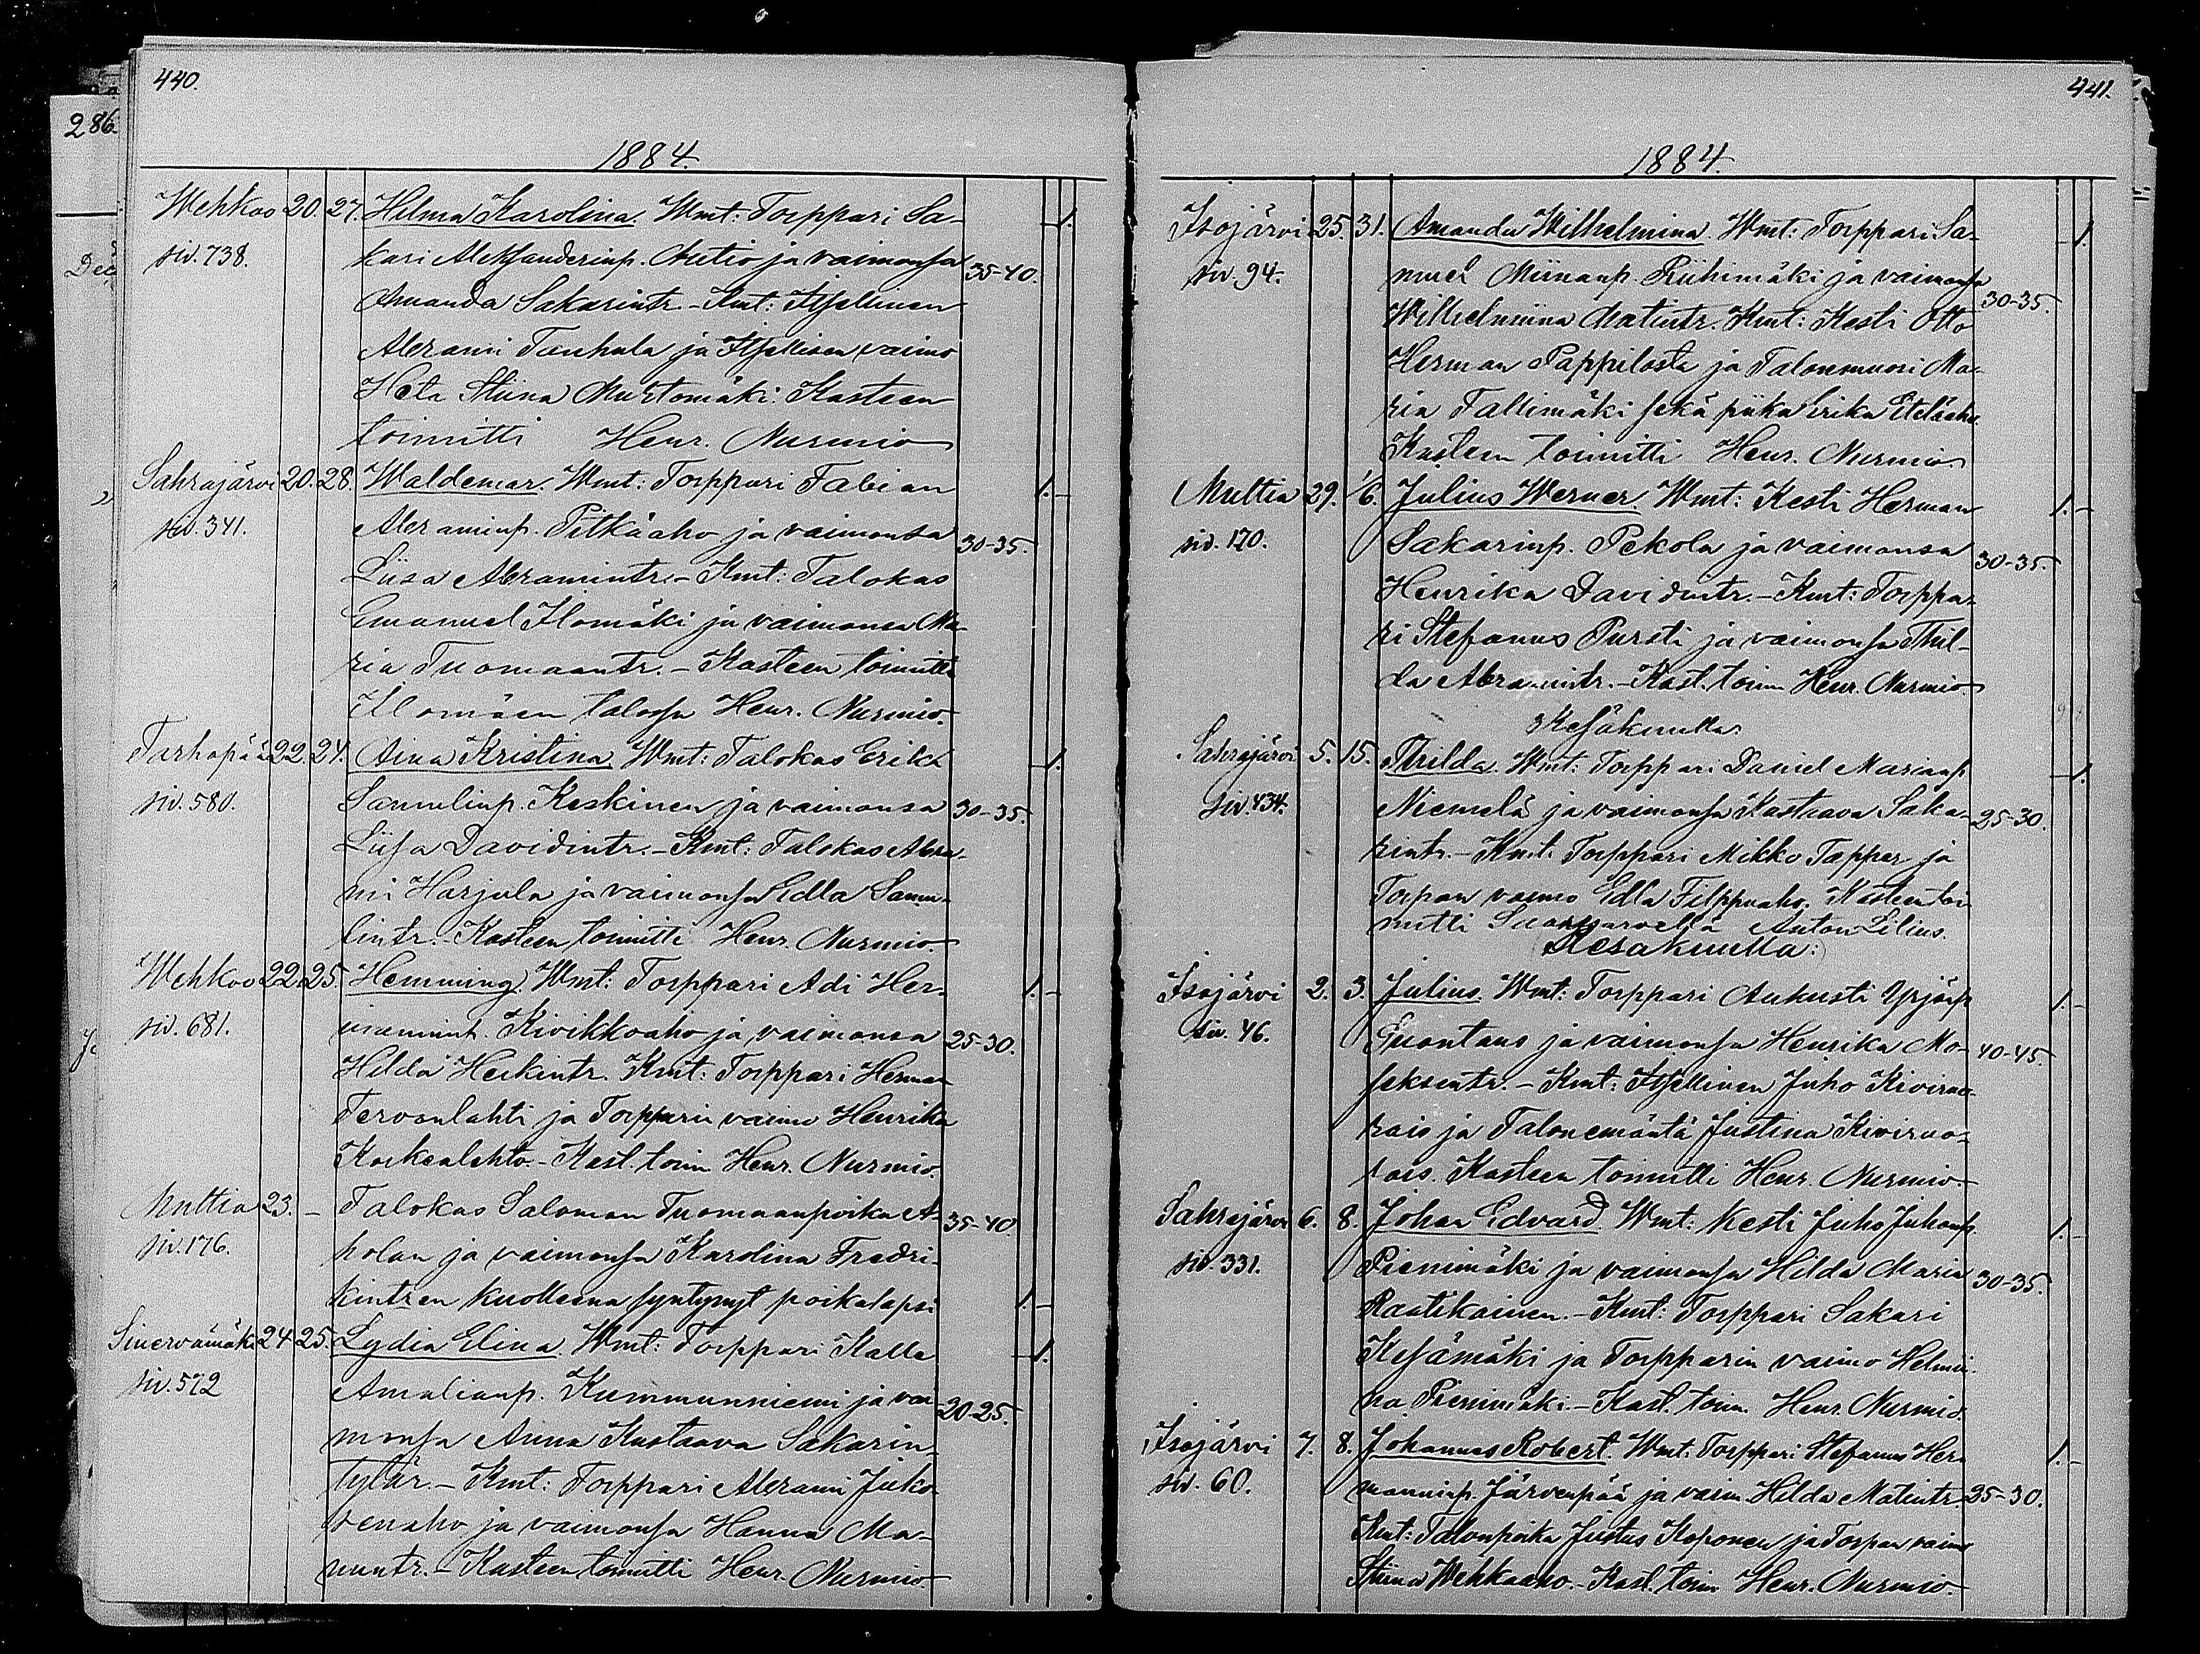 440.
286.
1884.
Wehkoo 20. 27. Hilma Karolina. Wmt: Torppari Sa-
siv. 738. kari Aleksanderinp. Autio ja vaimonsa 35-40.
Amanda Sakarintr. - Kmt: Itsellinen
Aberami Tanhula ja Itsellisen vaimo
Heta Stiina Murtomäki: Kasteen
toimitti Henr. Nurmio
Sahrajärvi 20. 28. Waldemar. Wmt: Torppari Fabian
siv. 341. Aberaminp. Pitkäaho ja vaimonsa 30-35.
Liisa Abramintr. - Kmt: Talokas
Emanuel Ilomäki ja vaimonsa Ma-
ria Tuomaantr. - Kasteen toimitti
Ilomäen talossa Henr. Nurmio.
Tarhapää 22. 24. Aina Kristina. Wmt: Talokas Erik
siv. 580. Samulinp. Keskinen ja vaimonsa 30-35.
Liisa Davidintr. - Kmt: Talokas Abra-
mi Harjula ja vaimonsa Edla Samu-
lintr. - Kasteen toimitti Henr. Nurmio.
Wehkoo 22. 25. Hemming. Wmt: Torppari Adi Her-
siv. 681. Kivikkoaho ja vaimonsa 25-30.
Hilda Heikintr. Kmt: Torppari Herman
Tervanlahti ja Torpparin vaimo Henrika
Koskenlehto. - Kast. toim Henr. Nurmio.
Multia 23. - Talokas Saloman Tuomaanpoika A- 35-40
siv. 176. holan ja vaimonsa Karolina Fredri-
kintren kuolleena syntynyt poikalapsi 1. -
Sinervämäki 24 25. Lydia Elina. Wmt: Torppari Kalle
siv. 572 Amalianp. Kummunniemi ja vai- 20-25.
monsa Anna Kustaava Sakarin-
tytär. - Kmt: Torppari Aberami Juko-
senaho ja vaimonsa Hanna Ma-
nuntr. - Kasteen toimitti Henr. Nurmio
441.
1884.
Isojärvi 25. 31. Amanda Wilhelmina. Wmt: Torppari Sa-
siv. 94. muel Miinanp. Riihimäki ja vaimonsa 30-35.
Wilhelmiina Matintr. Kmt: Kesti Otto
Herman Pappilasta ja Talonmuori Ma-
ria Tallimäki sekä piika Erika Eteläaho
Kasteen toimitti Henr. Nurmio
Multia 29. 1/6. Julius Werner. Wmt: Kesti Herman
siv. 120. Sakarinp. Pekola ja vaimonsa 30-35.
Henrika Davidintr. - Kmt: Torppa-
ri Stefanus Pursti ja vaimonsa Thil-
da Abramintr. - Kast. toim Henr. Nurmio.
Kesäkuulla
Sahrajärvi 5. 15. Thilda. Wmt: Torppari Daniel Marianp
siv. 434. Niemelä ja vaimonsa Kustaava Saka- 25-30.
rintr. - Kmt. Torppari Mikko Tapper ja
Torpan vaimo Edla Filppuaho. Kasteen toi-
mitti Saarijärvellä Anton Lilius.
Kesakuulla:
Isojärvi 2. 3. Julius. Wmt: Torppari Aukusti Yrjönp
siv. 46. Guontaus ja vaimonsa Henrika Mo- 40-45.
seksentr. - Kmt: Itsellinen Juho Kiviruo-
hois ja Talonemäntä Justina Kiviruo-
hois. Kasteen toimitti Henr. Nurmio
Sahrajärvi 6. 8. Johan Edvard. Wmt: Kesti Juho Juhonp.
siv. 331. Pienimäki ja vaimonsa Hilda Maria 30-35.
Rautikainen. - Kmt: Torppari Sakari
Kesämäki ja Torpparin vaimo Helmii-
na Pienimäki. - Kast. toim. Henr. Nurmio.
Isojärvi 7. 8. Johannes Robert. Wmt: Torppari Stefanus Her-
siv. 60. manninp. Järvenpää ja vaim. Hilda Matintr. 25-30.
Kmt: Talonpoika Justus Koponen ja Torpan vaimo
Stiina Wehkaaho. - Kast. toim Henr. Nurmio.